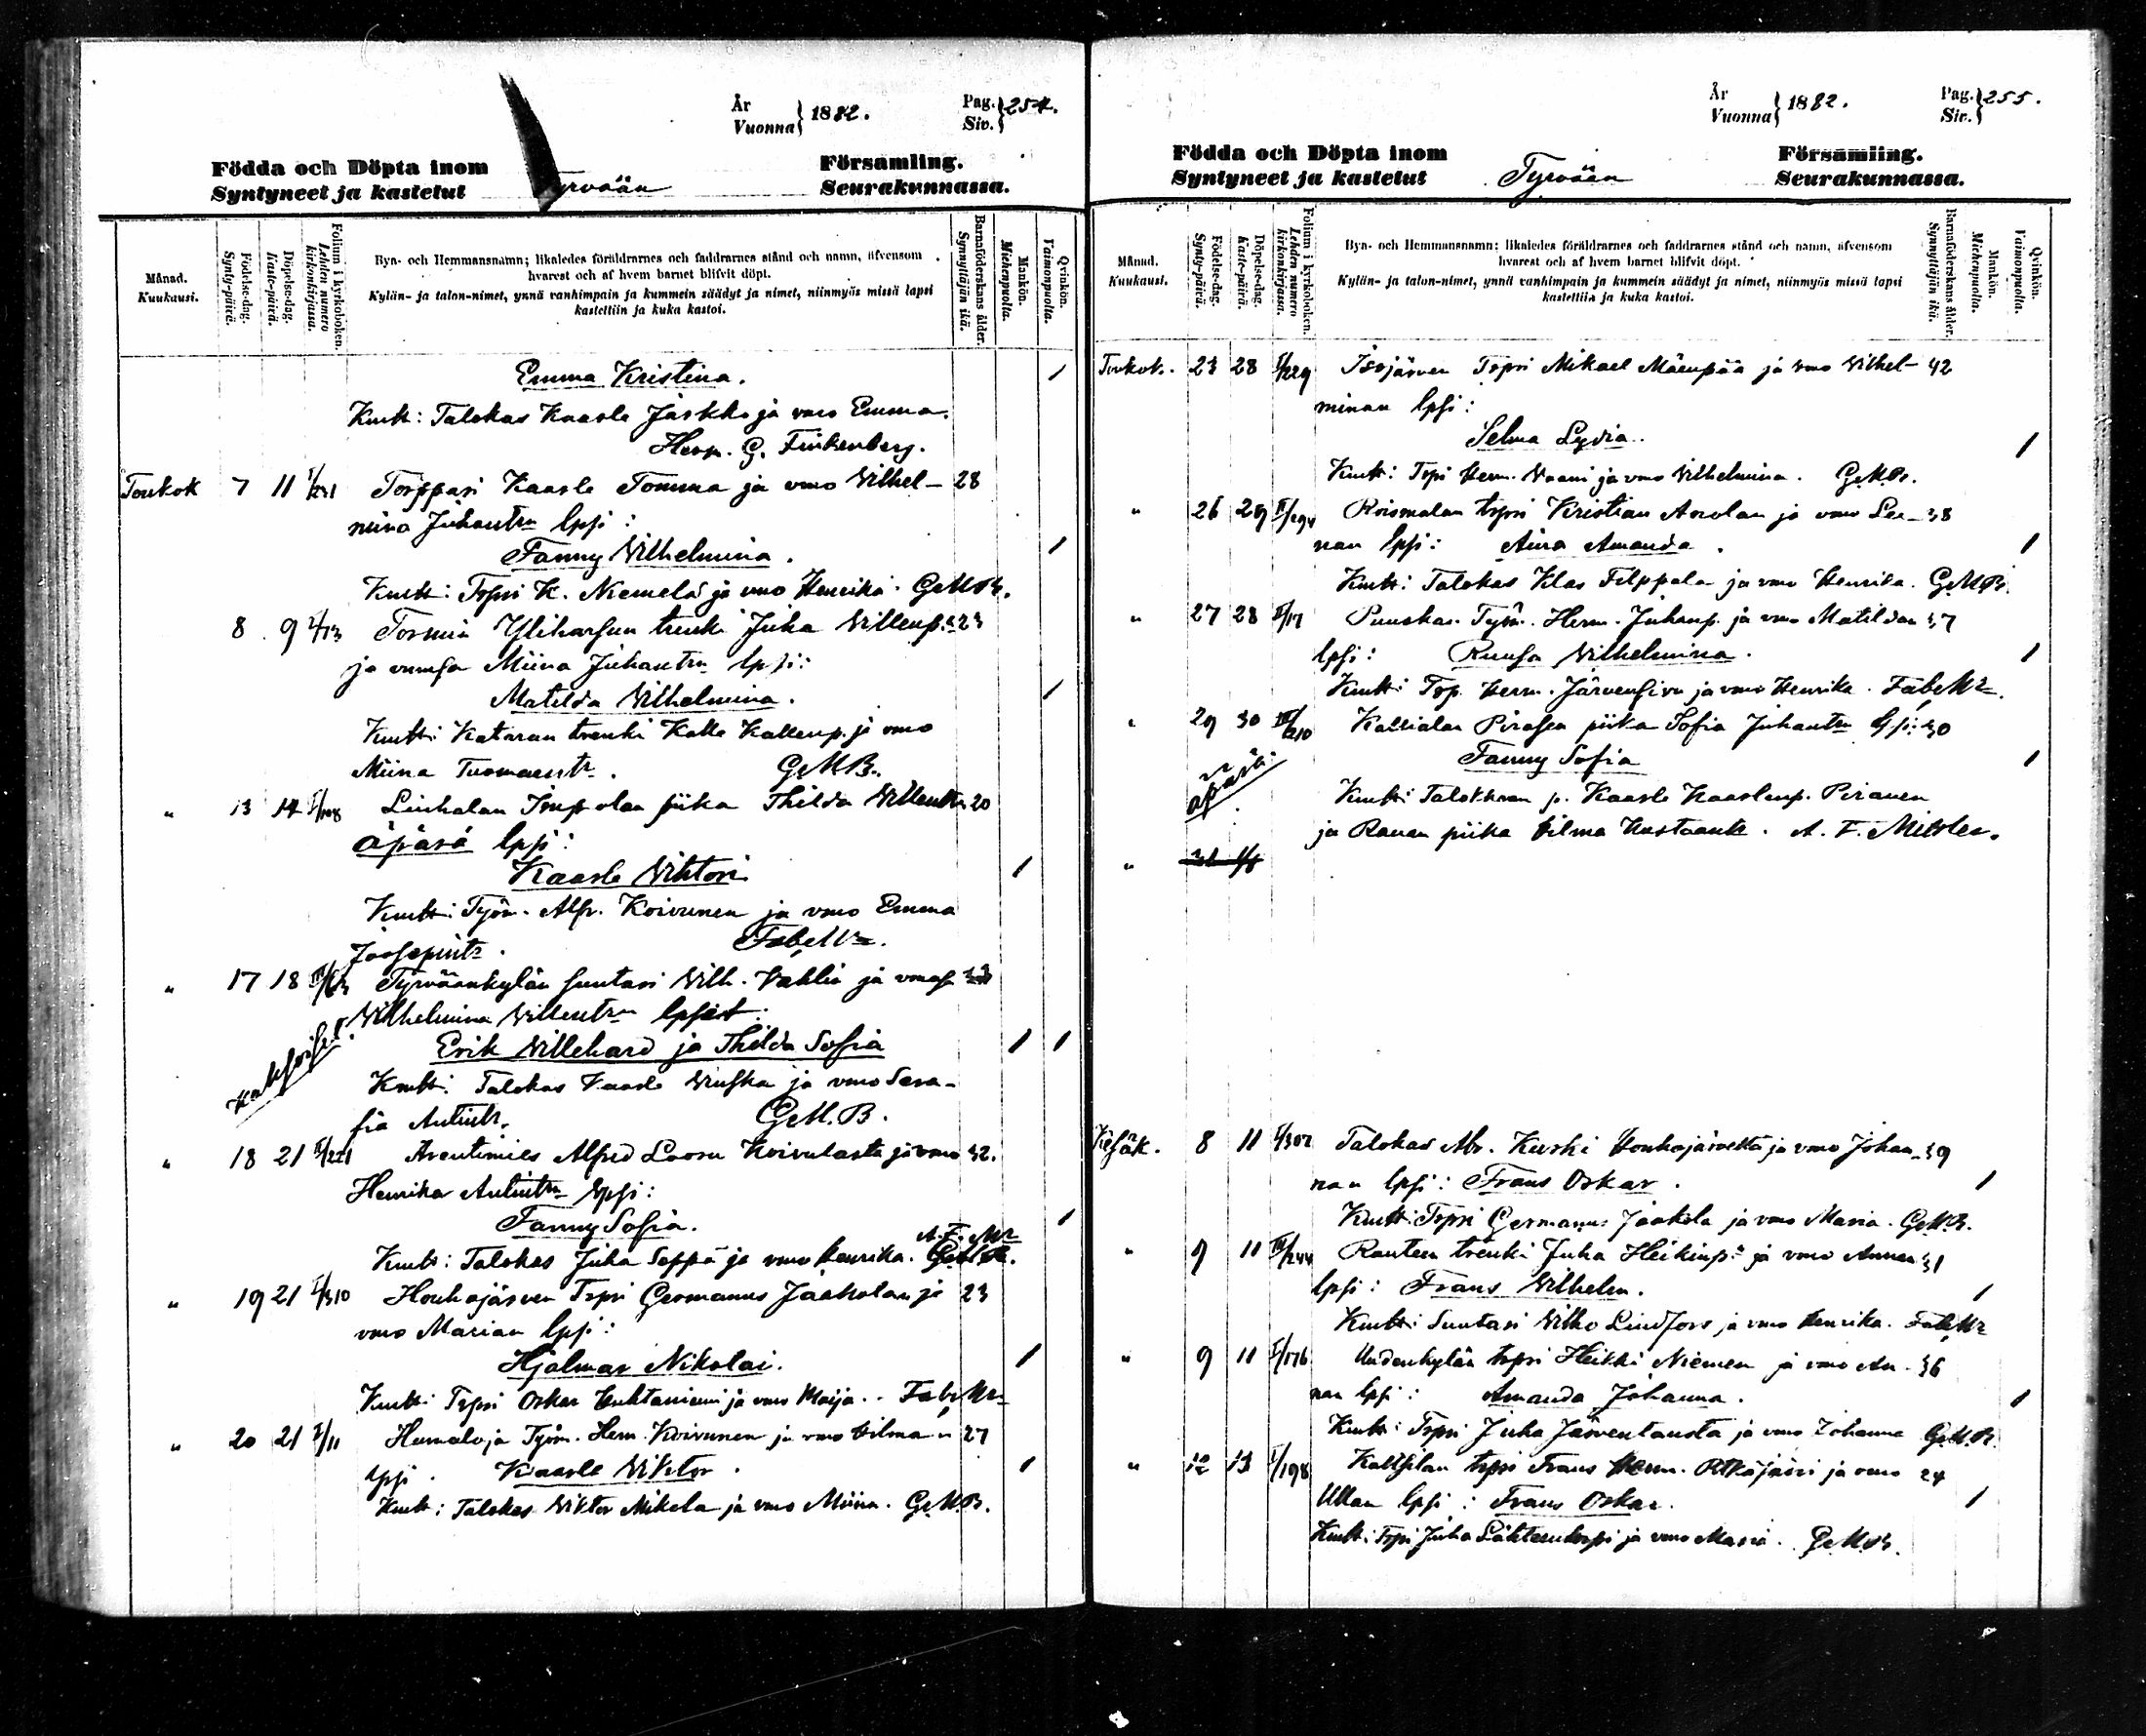 År
Vuonna } 1882.
Pag.
Siv. } 254.
Födda och Döpta inom
Syntyneet ja kastetut
Tyrvään
Församling.
Seurakunnassa.
Månad.
Kuukausi.
Födelse-dag.
Synty-päivä.
Döpelse-dag.
Kaste-päivä.
Folium i kyrkoboken.
Lehden numero
kirkonkirjassa.
Byn- och Hemmansnamn; likaledes föräldrarnes och faddrarnes stånd och namn, äfvensom
hvarest och af hvem barnet blifvit döpt.
Kylän- ja talon-nimet, ynnä vanhimpain ja kummein säädyt ja nimet, niinmyös missä lapsi
kastettiin ja kuka kastoi.
Barnaföderskans ålder.
Synnyttäjän ikä.
Mankön.
Miehenpuolta.
Qvinkön.
Vaimonpuolta.
Emma Kristina. 1
Kmtt: Talokas Kaarle Jaskka ja vmo Emma.
Herm. G. Finkenberg.
Toukok 7 11 I/231 Torppari Kaarle Tomma ja vmo Vilhel- 28
mina Juhantr lpsi:
Fanny Vilhelmina. 1
Kmtt: Trpri K. Niemelä ja vmo Henrika. G.M.B.
8 9 Tormin Yliharsun trenki Juha Villenp. 23
ja vmonsa Miina Juhantr lpsi:
Matilda Vilhelmina. 1
Kmtt: Kataran trenki Kalle Kallenp. ja vmo
Miina Tuomaantr. G.M.B.
" 13 14 I/108 Liuhalan piika Thilda Villentr 20
äpärä lpsi:
Kaarle Viktori 1
Kmtt: Työm. Alfr. Koivunen ja vmo Emma
Joosepintr. Fab. Mr.
" 17 18 Tyrväänkylän suutari Vilh. Vahlin ja vmonsa 33
Vilhelmina Villentr lpset:
kaksoiset.
Erik Villehard ja Thilda Sofia 1 1
Kmtt: Talokas Kaarle ja vmo Sera-
fia Antintr. G.M.B.
" 18 21 II/221 Arentimies Alfred Laosu Koivulasta ja vmo 32.
Henrika Antintr lpsi:
Fanny Sofia. 1
A. F. Mr
Kmtt: Talokas Juha Seppä ja vmo Henrika. G.M.B.
" 19 21 I/310 Houhajärven Trpri Germanus Jaakolan ja 23
vmo Marian lpsi:
Hjalmar Nikolai. 1
Kmtt: Trpri Oskar Huhtaniemi ja vmo Maija. Fab. Mr
" 20 21 I/11 Humaloja Työm. Herm. Koivunen ja vmo Hilman 27
lpsi. Kaarle Viktor. 1
Kmtt: Talokas Viktor Mikola ja vmo Miina. G.M.B.
År
Vuonna } 1882.
Pag.
Siv. } 255.
Födda och Döpta inom
Syntyneet ja kastetut
Tyrvään
Församling.
Seurakunnassa.
Månad.
Kuukausi.
Födelse-dag.
Synty-päivä.
Döpelse-dag.
Kaste-päivä.
Folium i kyrkoboken.
Lehden numero
kirkonkirjassa.
Byn- och Hemmansnamn; likaledes föräldrarnes och faddrarnes stånd och namn, äfvensom
hvarest och af hvem barnet blifvit döpt.
Kylän- ja talon-nimet, ynnä vanhimpain ja kummein säädyt ja nimet, niinmyös missä lapsi
kastettiin ja kuka kastoi.
Barnaföderskans ålder.
Synnyttäjän ikä.
Mankön.
Miehenpuolta.
Qvinkön.
Vaimonpuolta.
Toukok. 23 28 I/229 Isojärven Trpri Mikael Mäenpää ja vmo Vilhel- 42
minan lpsi:
Selma Lydia. 1
Kmtt: Trpri Herm. Vaani ja vmo Vilhelmina. G.M.B.
" 26 29 II/294 Roismalan trpri Kristian Anolan ja vmo Lee- 38
nan lpsi: Aina Amanda. 1
Kmtt: Talokas Klas Filppula ja vmo Henrika. G.M.B.
" 27 28 II/17 Punskas. Työm. Herm. Juhanp. ja vmo Matildan 37
lpsi: Ruusa Vilhelmina. 1
Kmtt: Trp. Herm. Järvensivu ja vmo Henrika. Fab. Mr.
" 29 30 III/210 Kallialan Pirasen piika Sofia Juhantr lpsi: 30
äpärä.
Fanny Sofia 1
Kmtt: Talokkaan p. Kaarle Kaarlenp. Piranen
ja Rauan piika Hilma Kustaantr. A. F. Mittler.
" 31 1/6
Kesäk. 8 11 I/302 Talokas Abr. Kurki Houhajärveltä ja vmo Johan- 39
nan lpsi: Frans Oskar. 1
Kmtt: Trpri Germanus Jaakola ja vmo Maria. G.M.B.
" 9 11 III/244 Rauten trenki Juha Heikinp. ja vmo Annan 31
lpsi: Frans Vilhelm. 1
Kmtt: Suutari Vilho Lindfors ja vmo Henrika. Fab. Mr
" 9 11 I/176 Uudenkylän trpri Heikki Niemen ja vmo An- 36
nan lpsi: Amanda Johanna. 1
Kmtt: Trpri Juha Järventausta ja vmo Johanna G.M.B.
" 12 13 I/198 Kaltsilan trpri Frans Herm. Pitkäjärvi ja vmo 24
Ullan lpsi: Frans Oskar. 1
Kmtt: Trpri Juha Lähteenkorpi ja vmo Maria. G.M.B.